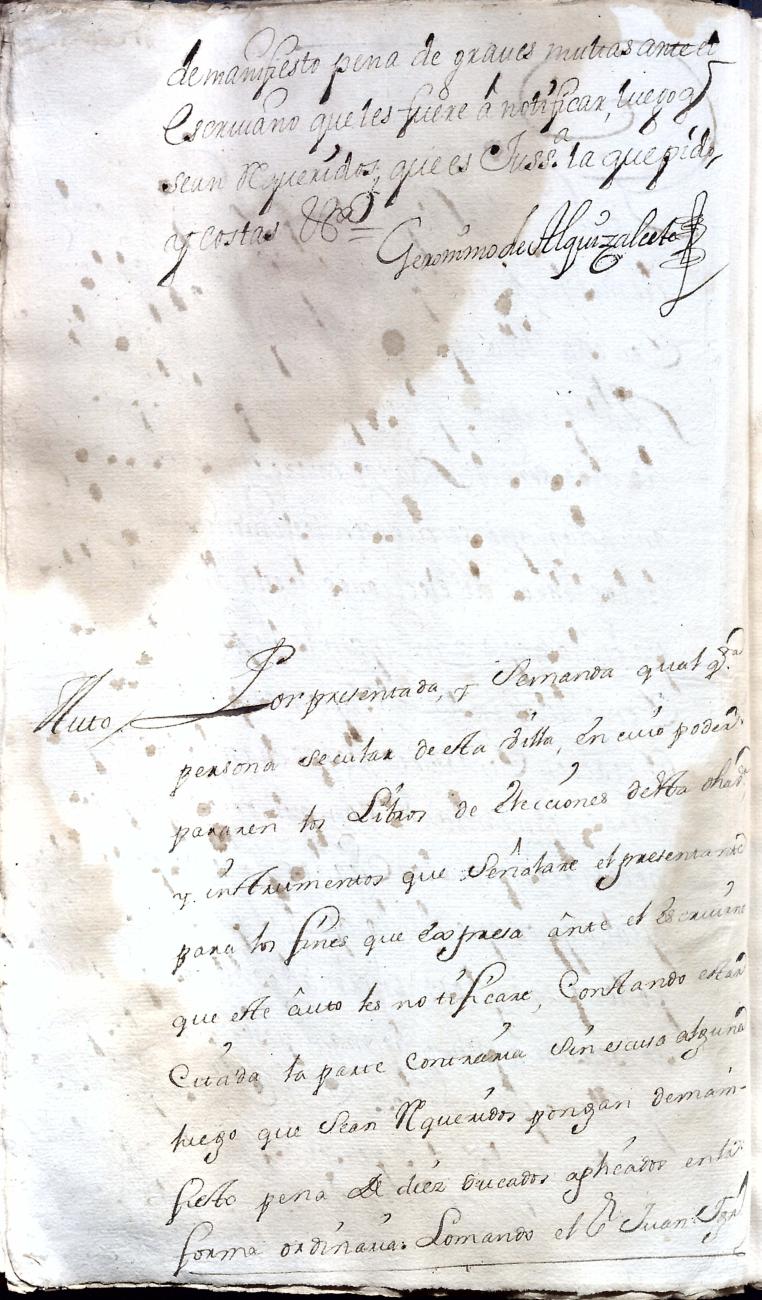 demanifiesto pena de graves multas ante el
Escrivano que les fuere â notificar, luego q
sean Rqueridos, que es Juss.a la que pido,
y costas &a
Geronimo de Alquizalete
Auto
Por presentada, y Semanda qual q.ra
persona secular de esta Villa, En cuio poder
pararen los Libros de Elecciones de esta
y instrumentos que Señalare el presentante
para los fines que Expresa ânte el Escrivano
que este âuto les notificare, Constando estar
Citada la parte Contraria Sin escusa alguna
luego que Sean Rqueridos pongan demani-
fiesto pena de diez ducados aplicados en la
forma ordinaria. Lomando el S.r Juan